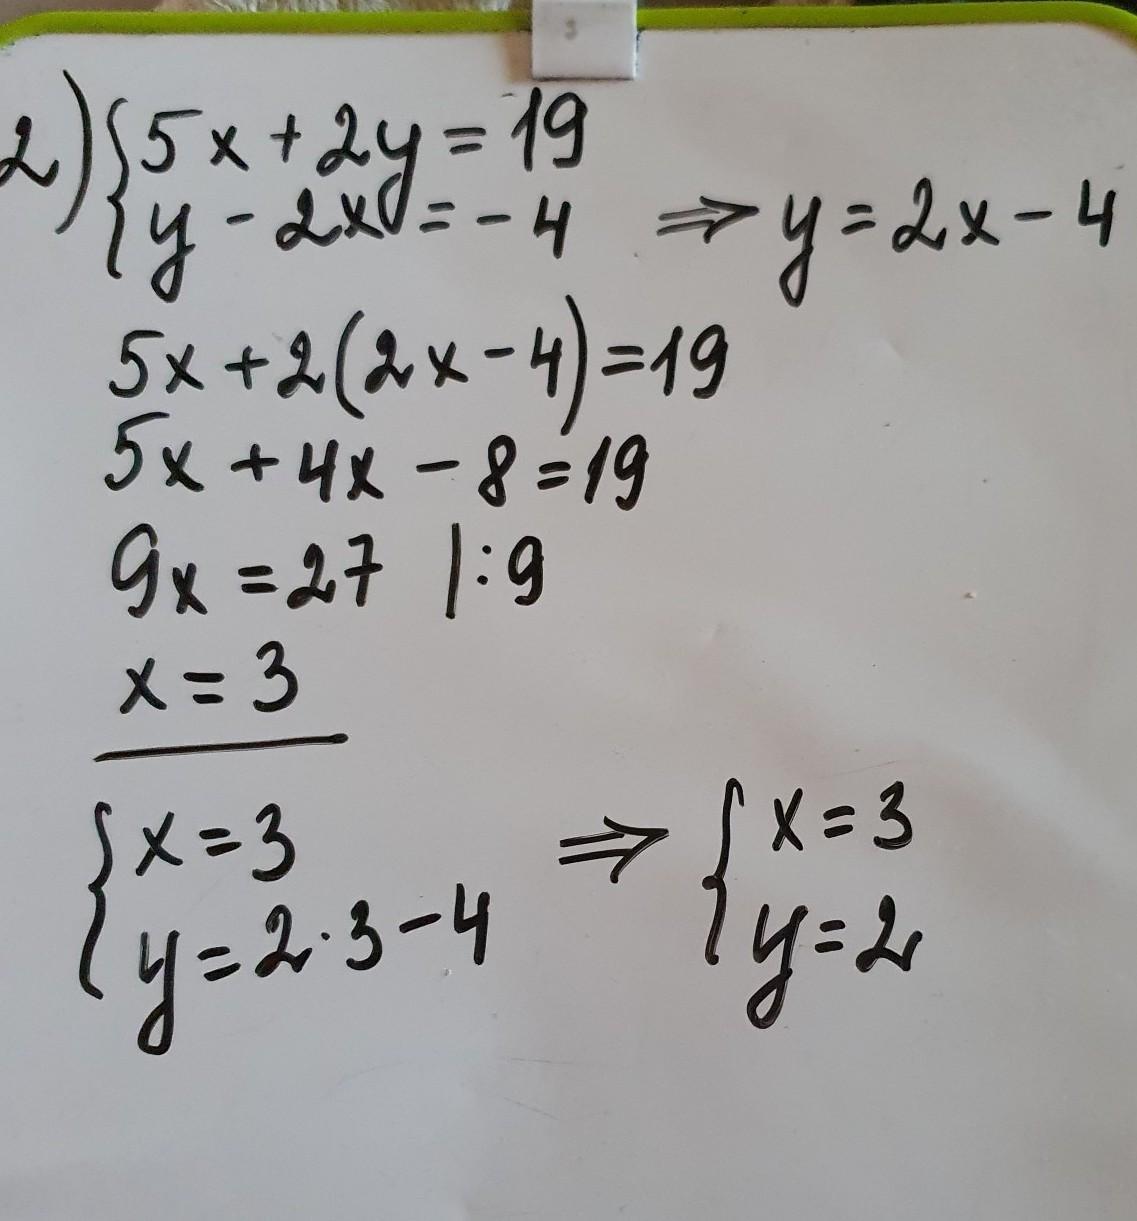 2) { 5x + 2y = 19
y - 2x = - 4 ⇒ y = 2x - 4
5x + 2(2x - 4) = 19
5x + 4x - 8 = 19
9x = 27 | : 9
x = 3
{ x = 3 ⇒ { x = 3
y = 2 · 3 - 4 y = 2